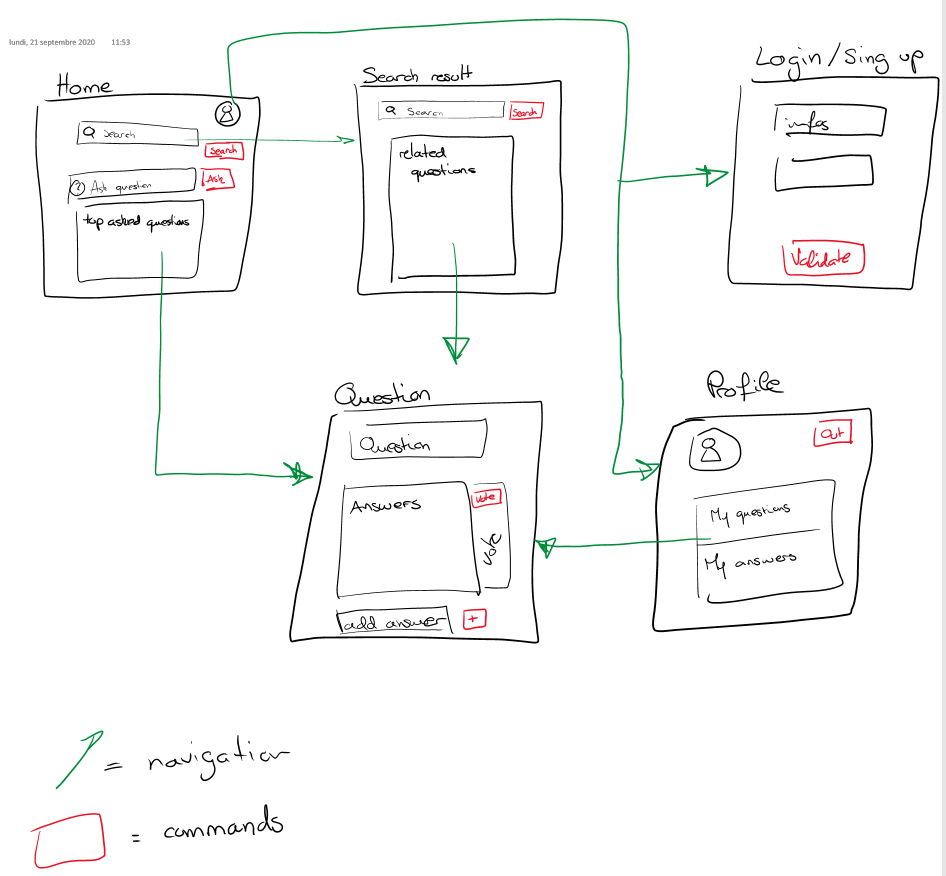 lundi, 21 septembre 2020 11:53
Home
Search
Search
? Ask question
Ask
top asked questions
Search result
Search
Search
related
questions
Login/Sing up
infos
Validate
Question
Question
Answers
Vote
Vote
add answer
+
Profile
Out
My questions
My answers
= navigation
= commands